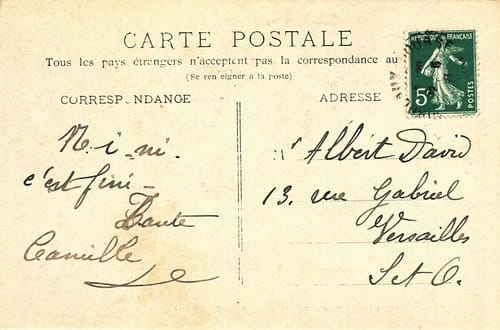 CARTE POSTALE
Tous les pays étrangers n'acceptent pas la correspondance au
(Se renseigner à la poste)
CORRESPONDANCE
N. i - ni.
c'est fini -
Tante
Camille
ADRESSE
Albert David
13. rue Gabriel
Versailles
S et O.
RÉPUBLIQUE FRANÇAISE
5c
POSTES